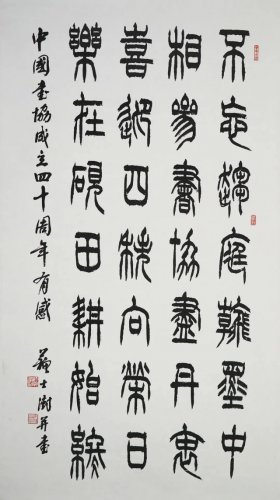 不忘庭翰墨中
相書協盡丹衷
喜迎四秩向榮日
樂在硯田耕始終
中國書協成立四十周年有感
蘇士澍并書